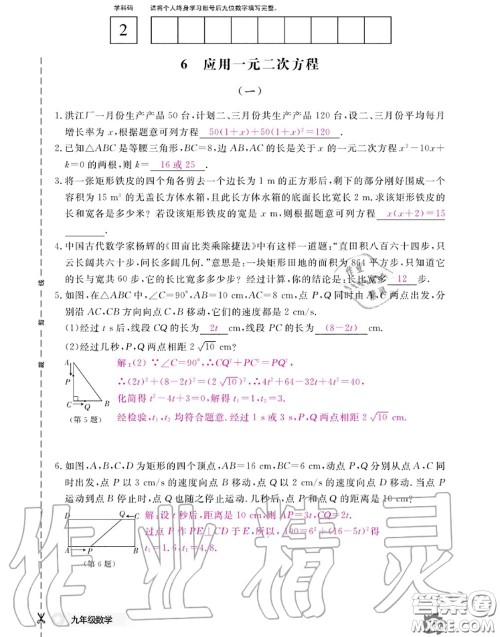 学科码 请将个人终身学习账号后九位数字填写完整。
2
6 应用一元二次方程
(一)
1.洪江厂一月份生产产品 50 台,计划二、三月份共生产产品 120 台,设二、三月份平均每月
增长率为 x,根据题意可列方程 50(1+x)+50(1+x)²=120 .
2.已知△ABC 是等腰三角形,BC=8,边 AB,AC 的长是关于 x 的一元二次方程 x²-10x+
k=0 的两根,则 k= 16 或 25 .
3.将一张矩形铁皮的四个角各剪去一个边长为 1 m 的正方形后,剩下的部分刚好围成一个
容积为 15 m³ 的无盖长方体水箱,且此长方体水箱的底面长比宽多 2 m.求该矩形铁皮的
长和宽各是多少米?若设该矩形铁皮的宽是 x m,则根据题意可得方程 x(x+2)=15
4.中国古代数学家杨辉的《田亩比类乘除捷法》中有这样一道题:“直田积八百六十四步,只
云长阔共六十步,问长多阔几何.”意思是:一块矩形田地的面积为 864 平方步,只知道它
的长与宽共 60 步,它的长比宽多多少步?经过计算,你的结论是:长比宽多 12 步.
5.如图,在△ABC 中,∠C=90°,AB=10 cm,BC=8 cm,点 P,Q 同时由 A,C 两点出发,分
别沿 AC,CB 方向向点 C,B 移动,它们的速度都是 2 cm/s.
(1)经过 t s 后,线段 CQ 的长为 2t cm,线段 QB 的长为 (8-2t) cm.
(2)经过几秒,P,Q 两点相距 2√10 cm?
解:(2)∵∠C=90°,∴CQ²+PC²=PQ²,
∴(2t)²+(8-2t)²=(2√10)²,
化简得 t²-4t+3=0,解得 t₁=1,t₂=3.
经检验,t₁,t₂ 均符合题意.经过 1 s 或 3 s,P,Q 两点相距 2√10 cm.
(第 5 题)
6.如图,A,B,C,D 为矩形的四个顶点,AB=16 cm,BC=6 cm,动点 P,Q 分别从点 A,C 同
时出发,点 P 以 3 cm/s 的速度向点 B 移动,点 Q 以 2 cm/s 的速度向点 D 移动.当点 P
运动到点 B 停止时,点 Q 也随之停止运动.几秒后,点 P 和点 Q 的距离是 10 cm?
解:设 t 秒后,距离是 10 cm,则 AP=3t,CQ=2t.
过点 P 作 PE⊥CD 于 E,所以,100=6²+(16-5t)²
得 t₁=1.6,t₂=4.8.
(第 6 题)
九年级数学
作业精灵